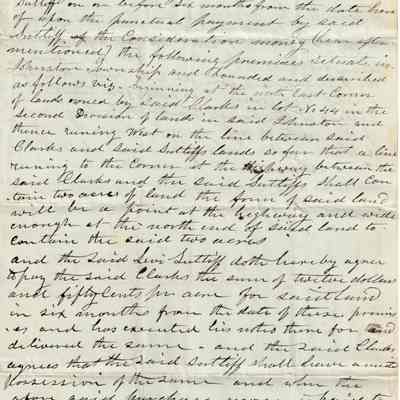 Sutliff on or before six months from the date here
of upon the punctual payment by said
Sutliff of the Consideration money (here after
mentioned) the following premises situate in
Johnston Township and bounded and described
as follows viz - running at the north East Corner
of lands owned by said Clarks in lot No 44 in the
second Division of lands in said Johnston and
thence runing West on the line between said
Clarks and said Sutliffs lands so far that a line
runing to the Corner at the Highway between the
said Clarks and the said Sutliffs shall Con
tain two acres of land the form of said land
will be a point at the highway and wide
enough at the north end of said land to
contain the said two acres
and the said Levi Sutliff doth hereby agree
to pay the said Clarks the sum of twelve dollars
and fifty Cents per acre for said land
in six months from the date of these premis
es and has executed his notes them for and
delivered the same - and the said Clarks
agrees that the said Sutliff shall have
possession of the same and when the
above said purchase money is paid to